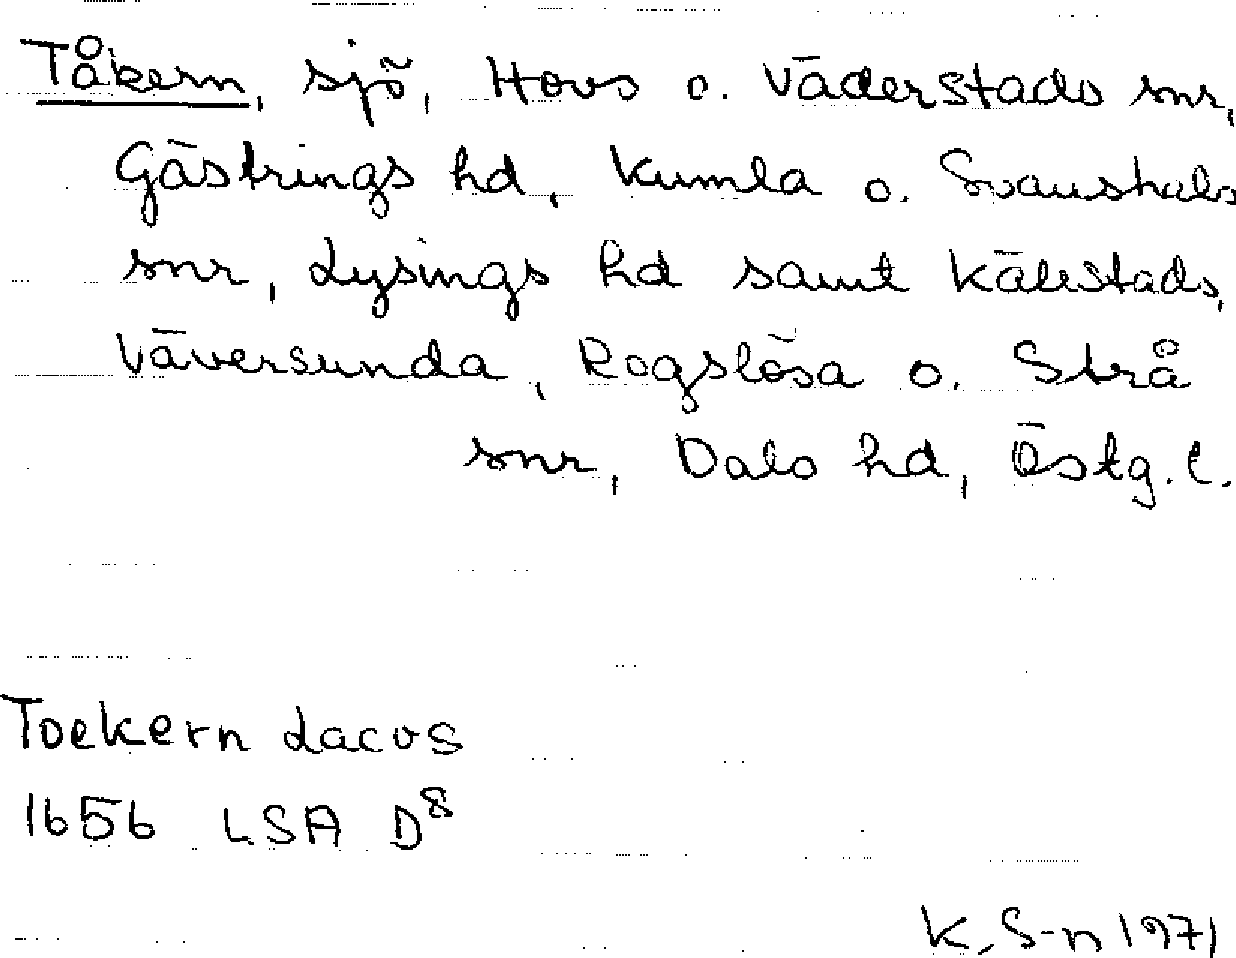 Tåkern, sjö, Hovs o. Väderstads snr,
Gästrings hd, Kumla o. Svanshals
snr, Lysings hd samt Källstads,
Väversunda, Rogslösa o. Strå
snr, Dals hd, Östg. l.
Toekern Lacus
1656 LSA D8
K. S-n 1971